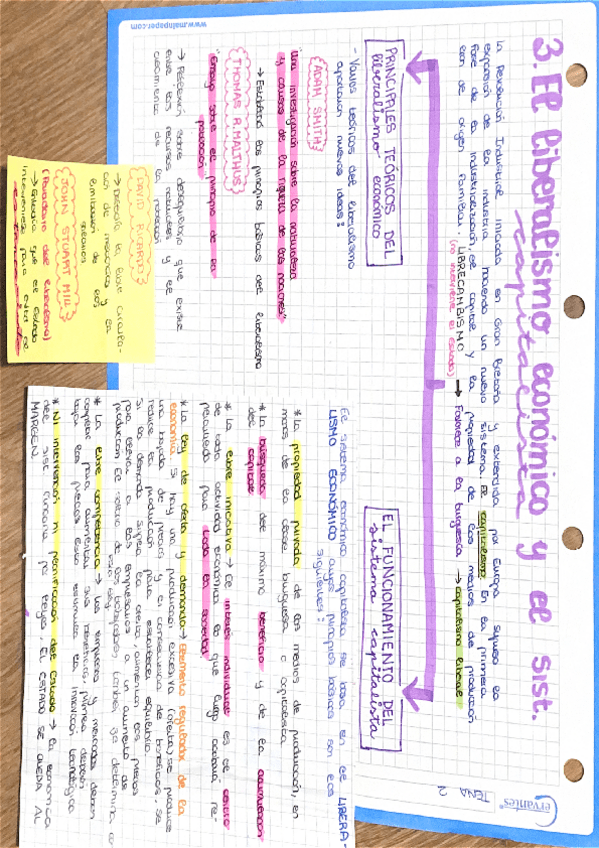 Cervantes
TEMA 2
www.mainpaper.com
3. El liberalismo económico y el sist.
capitalista
La Revolución Industrial iniciada en Gran Bretaña y extendida por Europa supuso la
expansión de la industria haciendo un nuevo sistema El capitalismo. En la primera
fase de la industrialización, el capital y la propiedad de los medios de producción
eran de origen familiar. LIBRECAMBISMO → Favorece a la burguesía → capitalismo liberal
(no interviene el Estado)
PRINCIPALES TEÓRICOS DEL
liberalismo económico
- Varios teóricos del liberalismo
aportaron nuevas ideas:
ADAM SMITH
"Una investigación sobre la naturaleza
y causas de la riqueza de las naciones"
→ Estableció los principios básicos del liberalismo
THOMAS R. MALTHUS
"Ensayo sobre el principio de la
población"
→ Reflexión sobre desequilibrio que existe
entre los recursos naturales y el
crecimiento de la población
DAVID RICARDO
→ Defendía la libre circula-
ción de mercancías y la
limitación de los
salarios
JOHN STUART MILL
(Partidario del liberalismo)
→ Entendía que el Estado
EL FUNCIONAMIENTO DEL
sistema capitalista
El sistema económico capitalista se basa en el LIBERA-
LISMO ECONÓMICO cuyos principios básicos son los
siguientes:
* La propiedad privada de los medios de producción, en
manos de la clase burguesa o capitalista
* La búsqueda del máximo beneficio y de la acumulación
del capital
* La libre iniciativa → El interés individual es el centro
de toda actividad económica lo que luego acabará re-
percutiendo para toda la sociedad
* La ley de oferta y demanda → Elemento regulador de la
economía. Si hay una producción excesiva (oferta) se produce
una bajada de precios y en consecuencia de beneficios, se
reduce la producción para establecer equilibrio.
Si la demanda supera la oferta, aumentan los precios
para llevar a los empresarios a un aumento de
producción. El salario de los trabajadores también se determina con
esta ley.
* La libre competencia → Las empresas y mercados deben
competir para aumentar sus beneficios, primero deben
bajar los precios. Esto estimula la innovación tecnológica
* Ni intervención ni planificación del Estado → La económica
del sist. funciona por reglas, EL ESTADO SE QUEDA AL
MARGEN.